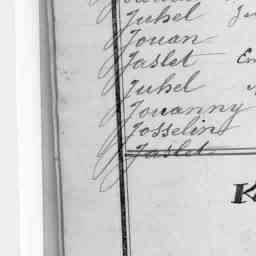 Juhel
Jouan
Jaslet
Juhel
Jouanny
Josselin
Jaslet
K